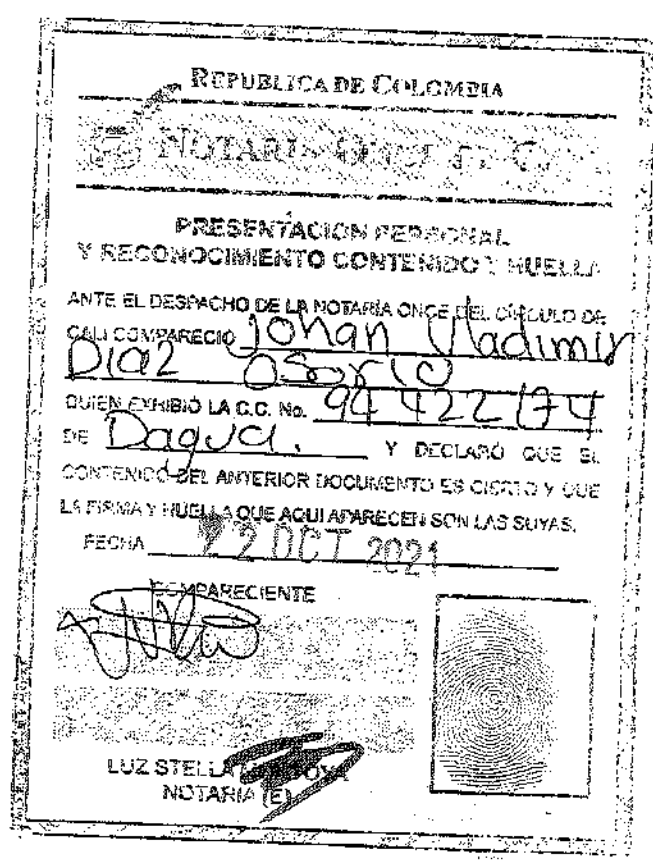 REPUBLICA DE COLOMBIA
NOTARIA ONCE DE
PRESENTACION PERSONAL
Y RECONOCIMIENTO CONTENIDO Y HUELLA
ANTE EL DESPACHO DE LA NOTARÍA ONCE DEL CIRCULO DE
CALI COMPARECIO Johan Vladimir
Diaz Osorio
QUIEN EXHIBIÓ LA C.C. No. 94 422 174
DE Dagua. Y DECLARÓ QUE EL
CONTENIDO DEL ANTERIOR DOCUMENTO ES CIERTO Y QUE
LA FIRMA Y HUELLA QUE AQUI APARECEN SON LAS SUYAS.
FECHA 22 OCT 2021
COMPARECIENTE
LUZ STELLA
NOTARIA (E)